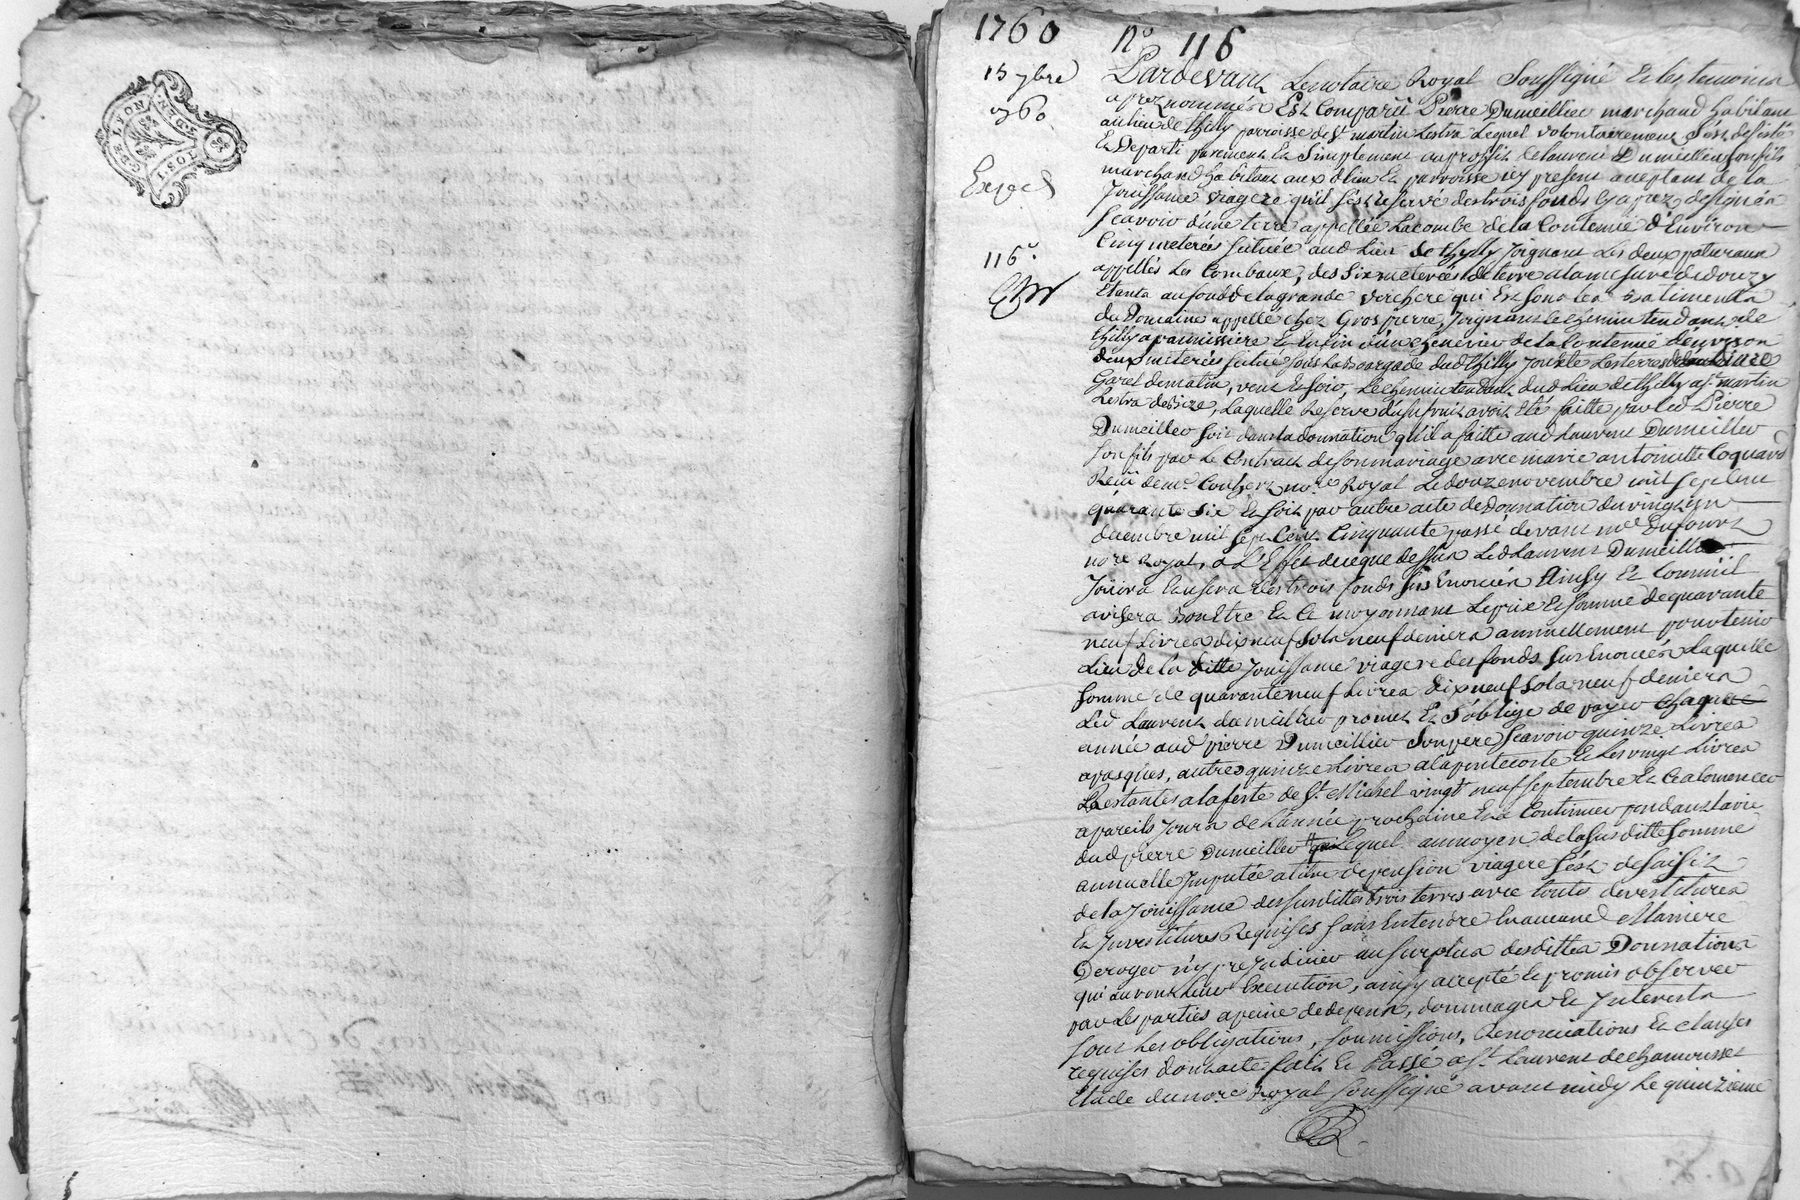 GEN. DE LYON
1. SOL
1760 nº 116
15 7bre
1760
Expéd
116.e
Pardevant Le notaire Royal Soussigné Et les temoins
apres nommés Est Comparû Pierre Dumeillier marchand habitant
au lieu de thilly parroisse de St martin Lestra Lequel volontairement s'est desisté
Et Departi purement Et Simplement au proffit de laurent Dumeillier son fils
marchand habitant aux d lieu Et parroisse icy present acceptant de la
Jouissance viagere qu'il s'est reservé des trois fonds cy apres designés
Scavoir d'une terre appellée Lacombe de la Contenue d'Environ
Cinq meterées scituée aud Lieu de thilly Joignant Les deux paturaux
appellés Les Combaux, des six meterées de terre a la mesure de donzy
Etants au fond de la grande verchere qui Est sous les batiments
du Domaine appellé chez Grospierre, Joignant le chemin tendant de
thilly a Enfin d'un chenevier de la Contenue d'environ
deux meterées scitué sous La Bourgade dud thilly Jouxte Les terres de
Garet de matin, vent Et soir, Le chemin tendant dud Lieu de thilly a St martin
Lestra de Bize, Laquelle Reserve d'usufruit avoit Eté faitte par led Pierre
Dumeillier soit dans la donnation qu'il a faitte aud Laurent Dumeillier
son fils par Le Contract de son mariage avec marie antoinette Coquard
Reçu de me. Not.re Royal Le douze novembre mil sept cent
quarante six Et soit par autre acte de Donnation du vingt un
decembre mil sept Cent Cinquante passé devant me Dufourt
no.re Royal, a L'Effet de ce que dessus Led Laurent Dumeillier
Joüira Et usera des trois fonds sus Enoncés Ainsy Et Comme il
avisera Bon Etre Et Ce moyennant Le prix Et somme de quarante
neuf Livres dix neuf sols neuf deniers annuellement pour tenir
Lieu de la ditte Jouissance viagere des fonds sus Enoncés Laquelle
somme de quarante neuf Livres dix neuf sols neuf deniers
Led Laurent dumeillier promet Et s'oblige de payer chaque
année aud pierre Dumeillier son pere, scavoir quinze Livres
a pasques, autres quinze Livres a la pentecoste Et Les vingt Livres
Restantes a la feste de St. Michel vingt neuf septembre Et a Commencer
a pareils Jours de L'année prochaine Et a Continuer pendant la vie
dud pierre Dumeillier Lequel au moyen de la sus ditte somme
annuelle Imputée a titre de pension viagere s'est desaisit
de la Jouissance des susdittes trois terres avec toutes devestitures
Et Investitures Requises sans Entendre En aucune Maniere
Deroger n'y prejudicier au surplus desdittes Donnations
qui auront leur Execution, ainsy accepté Et promis observer
par Les parties a peine de depens, dommages Et Interests
sous Les obligations, soumissions, Renonciations Et Clauses
requises dont acte fait Et Passé a St. Laurent de Chamousset
Etude du no.re Royal soussigné avant midy Le quinzieme